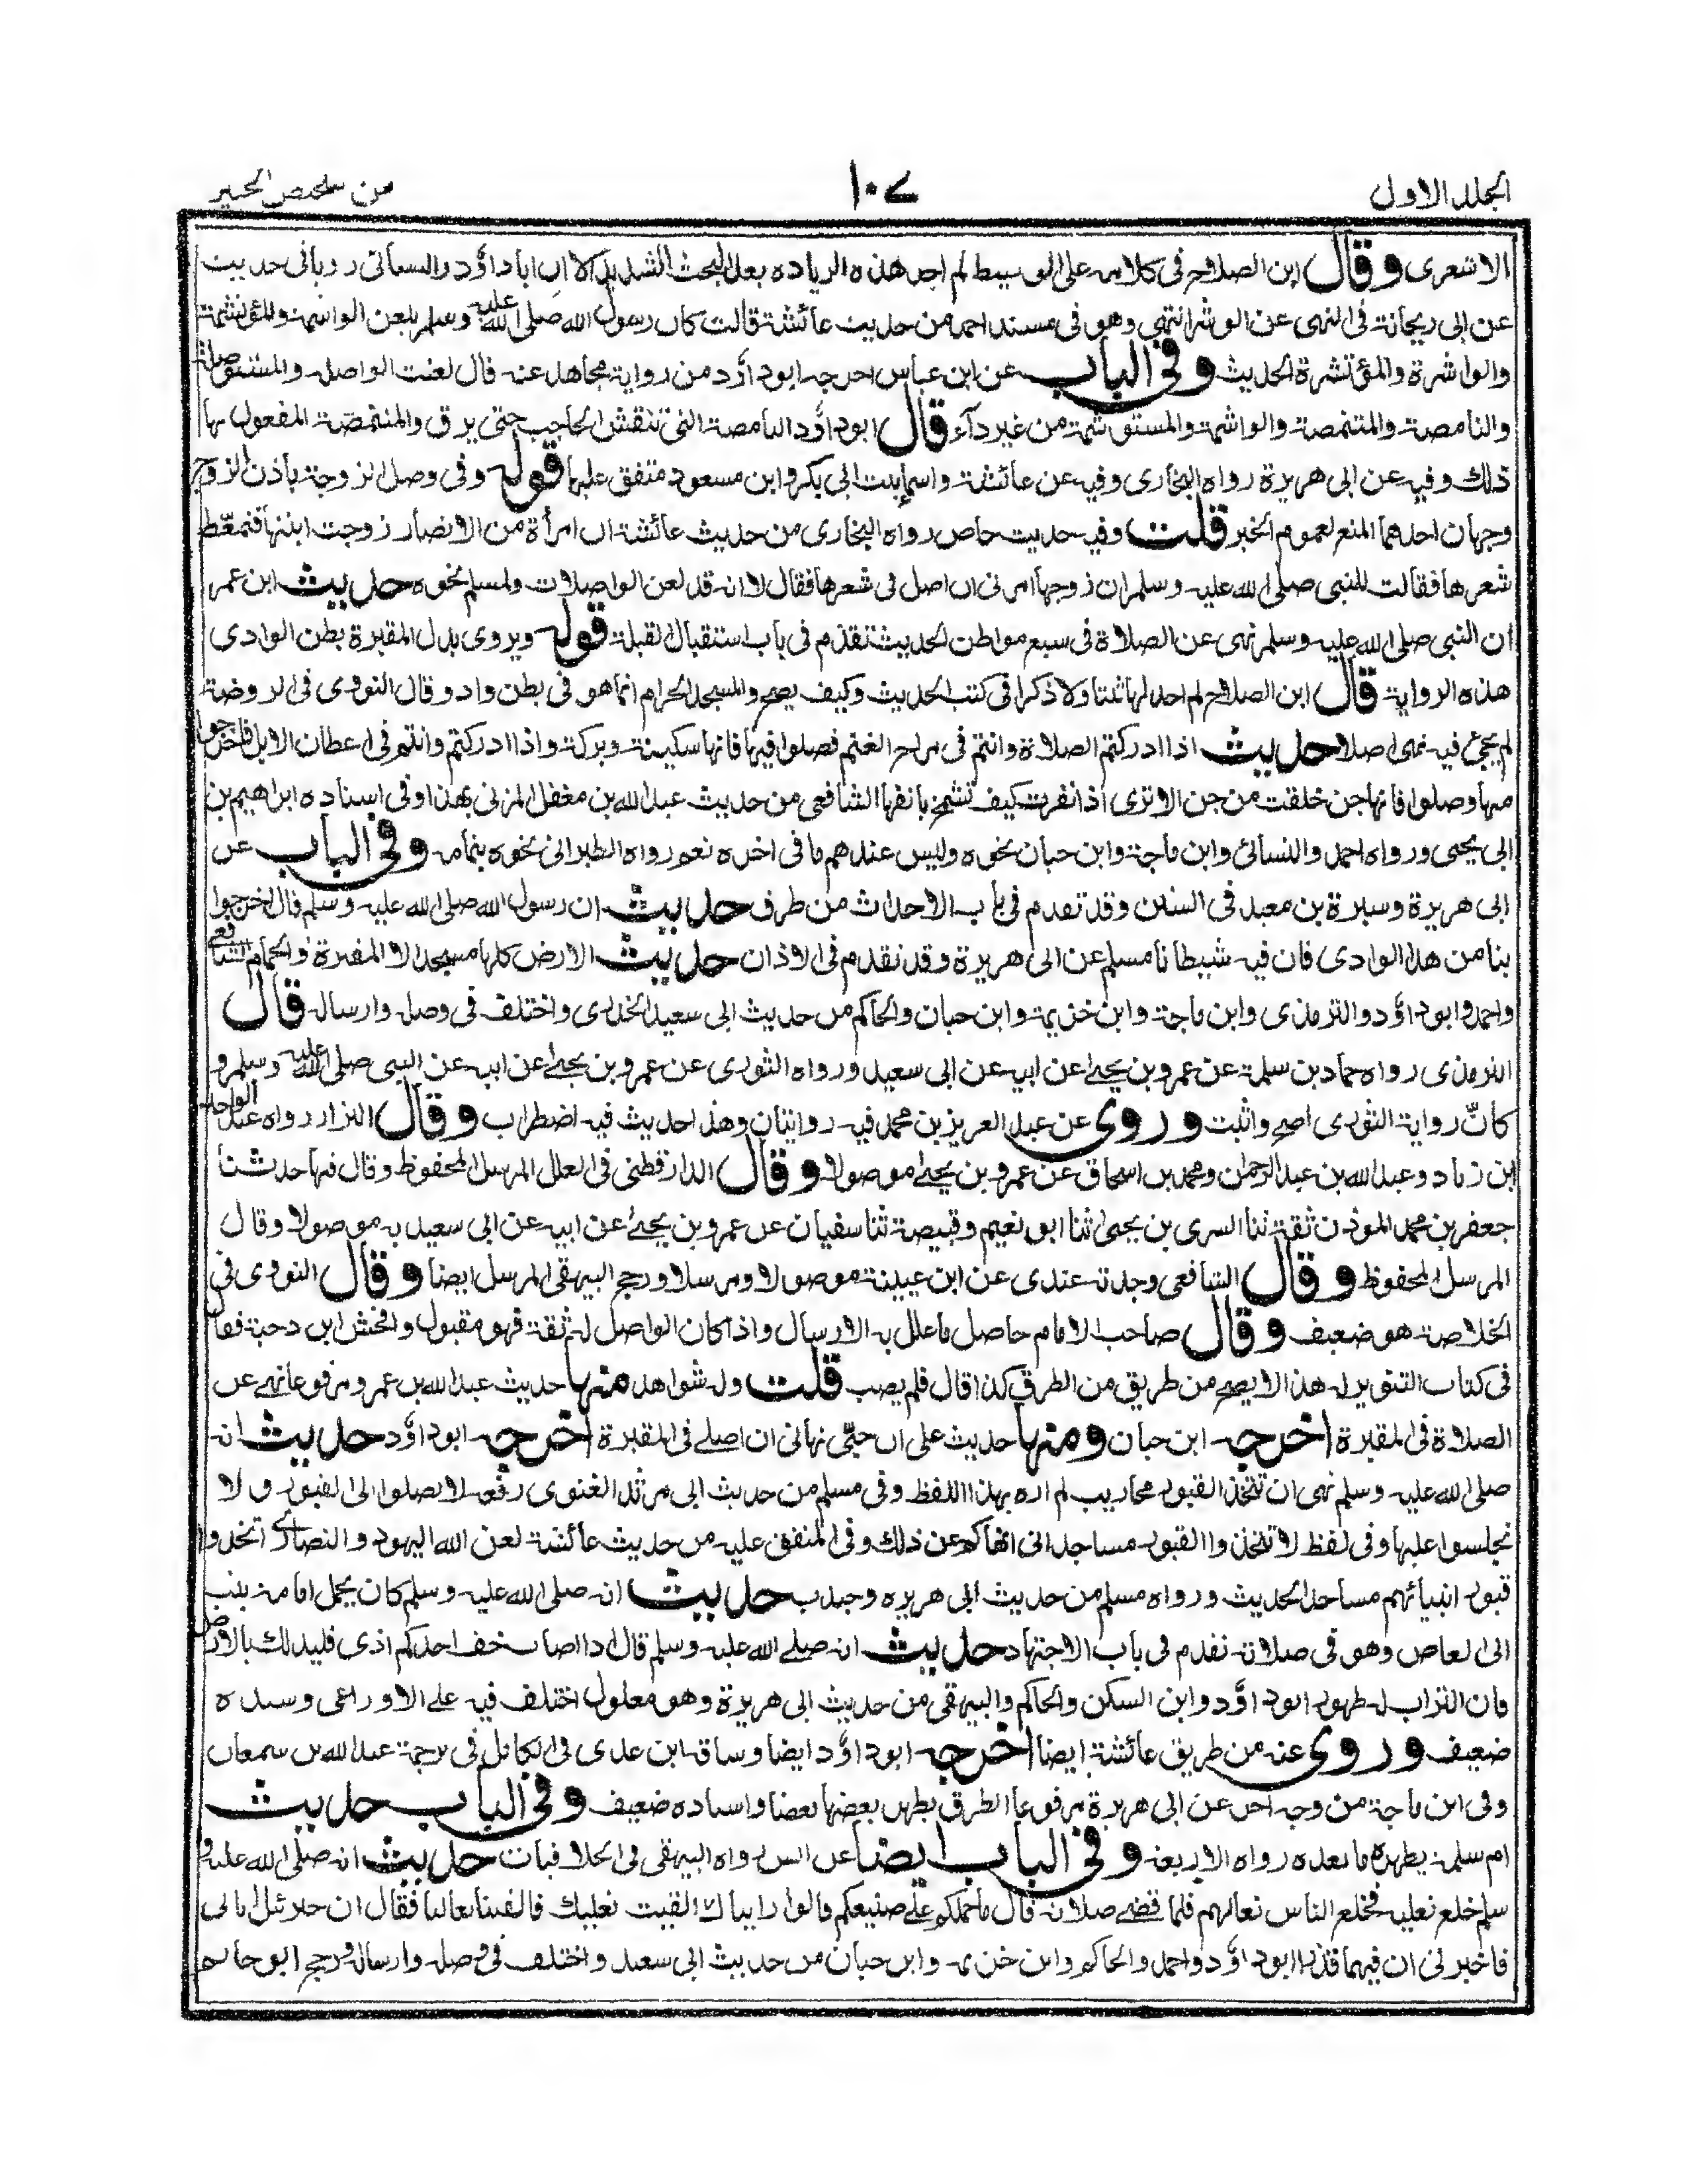 المجلد الاول
١٠٧
من تلخيص الحبير
الاشعرى وقال ابن الصلاح فى كلامه على الوسيط لم اجد هذه الزياده بعد البحث الشديد الا ان اباداؤد والنسائى رويا فى حديث
عن ابى ريحانة فى النهى عن الوشر انتهى وهو فى مسند احمد من حديث عائشة قالت كان رسول الله صلى الله عليه وسلم يلعن الواشمة والمؤتشمة
والواشرة والمؤتشرة الحديث وفى الباب عن ابن عباس اخرجه ابوداؤد من رواية مجاهد عنه قال لعنت الواصلة والمستوصلة
والنامصة والمتنمصة والواشمة والمستوشمة من غير دآء قال ابوداؤد النامصة التى تنقش الحاجب حتى يرق والمتنمصة المفعول بها
ذلك وفيه عن ابى هريرة رواه البخارى وفيه عن عائشة واسماء بنت ابى بكر وابن مسعود متفق عليها قوله وفى وصل الزوجة باذن الزوج
وجهان احدهما المنع لعموم الخبر قلت وفيه حديث خاص رواه البخارى من حديث عائشة ان امرأة من الانصار زوجت ابنتها فتمعّط
شعرها فقالت للنبى صلى الله عليه وسلم ان زوجها امرنى ان اصل فى شعرها فقال لا انه قد لعن الواصلات ولمسلم نحوه حديث ابن عمر
ان النبى صلى الله عليه وسلم نهى عن الصلاة فى سبع مواطن الحديث تقدم فى باب استقبال القبلة قوله ويروى بدل المقبرة بطن الوادى
هذه الرواية قال ابن الصلاح لم اجد لها ثبتا ولا ذكرا فى كتب الحديث وكيف يصح والمسجد الحرام انما هو فى بطن واد وقال النووى فى الروضة
لم يجئ فيه نهى اصلا حديث اذا ادركتم الصلاة وانتم فى مراح الغنم فصلوا فيها فانها سكينة وبركة واذا ادركتم وانتم فى اعطان الابل فاخرجوا
منها وصلوا فانها جن خلقت من جن الا ترى اذا نفرت كيف تشمخ بانفها الشافعى من حديث عبد الله بن مغفل المزنى بهذا وفى اسناده ابراهيم بن
ابى يحيى ورواه احمد والنسائى وابن ماجة وابن حبان نحوه وليس عندهم ما فى اخره نعم رواه الطبرانى نحوه بتمامه وفى الباب عن
ابى هريرة وسبرة بن معبد فى السنن وقد تقدم فى باب الاحداث من طرف حديث ان رسول الله صلى الله عليه وسلم قال اخرجوا
بنا من هذا الوادى فان فيه شيطانا مسلم عن ابى هريرة وقد تقدم فى الاذان حديث الارض كلها مسجد الا المقبرة والحمام الشافعى
واحمد وابوداؤد والترمذى وابن ماجة وابن خزيمة وابن حبان والحاكم من حديث ابى سعيد الخدرى واختلف فى وصله وارساله قال
الترمذى رواه حماد بن سلمة عن عمرو بن يحيى عن ابيه عن ابى سعيد ورواه الثورى عن عمرو بن يحيى عن ابيه عن النبى صلى الله عليه وسلم و
كانّ رواية الثورى اصح واثبت وروى عن عبد العزيز بن محمد فيه روايتان وهذا حديث فيه اضطراب وقال البزار رواه عبد الواحد
ابن زياد وعبد الله بن عبد الرحمان ومحمد بن اسحاق عن عمرو بن يحيى موصولا وقال الدارقطنى فى العلل المرسل المحفوظ وقال فيها حدثنا
جعفر بن محمد الموذن ثقة ثنا السرى بن يحيى ثنا ابو نعيم وقبيصة ثنا سفيان عن عمرو بن يحيى عن ابيه عن ابى سعيد به موصولا وقال
المرسل المحفوظ وقال الشافعى وجدته عندى عن ابن عيينة موصولا ومرسلا ورجح البيهقى المرسل ايضا وقال النووى فى
الخلاصة هو ضعيف وقال صاحب الامام حاصل ما علل به الارسال واذا كان الواصل له ثقة فهو مقبول وافحش ابن دحية فقال
فى كتاب التنوير له هذا لا يصح من طريق من الطرق كذا قال فلم يصب قلت وله شواهد منها حديث عبد الله بن عمرو مرفوعا نهى عن
الصلاة فى المقبرة اخرجه ابن حبان ومنها حديث على ان حبّى نهانى ان اصلى فى المقبرة اخرجه ابوداؤد حديث انه
صلى الله عليه وسلم نهى ان تتخذ القبور محاريب لم اره بهذا اللفظ وفى مسلم من حديث ابى مرثد الغنوى رفعه لا تصلوا الى القبور ولا
تجلسوا عليها وفى لفظ لا تتخذوا القبور مساجد انى انهاكم عن ذلك وفى المتفق عليه من حديث عائشة لعن الله اليهود والنصارى اتخذوا
قبور انبيائهم مساجد الحديث ورواه مسلم من حديث ابى هريره وجندب حديث انه صلى الله عليه وسلم كان يحمل امامة بنت
ابى العاص وهو فى صلاته تقدم فى باب الاجتهاد حديث انه صلى الله عليه وسلم قال اذا اصاب خف احدكم اذى فليدلك بالارض
فان التراب له طهور ابوداؤد وابن السكن والحاكم والبيهقى من حديث ابى هريرة وهو معلول اختلف فيه على الاوزاعى وسنده
ضعيف وروى عنه من طريق عائشة ايضا اخرجه ابوداؤد ايضا وساقه ابن عدى فى الكامل فى ترجمة عبد الله بن سمعان
وفى ابن ماجة من وجه اخر عن ابى هريرة مرفوعا الطرق يطهر بعضها بعضا واسناده ضعيف وفى الباب حديث
ام سلمة يطهره ما بعده رواه الاربعة وفى الباب ايضا عن انس رواه البيهقى فى الخلافيات حديث انه صلى الله عليه و
سلم خلع نعليه فخلع الناس نعالهم فلما قضى صلاته قال ما حملكم على صنيعكم قالوا رايناك القيت نعليك فالقينا نعالنا فقال ان جبرئيل اتانى
فاخبرنى ان فيهما قذرا ابوداؤد واحمد والحاكم وابن خزيمة وابن حبان من حديث ابى سعيد واختلف فى وصله وارساله ورجح ابو حاتم